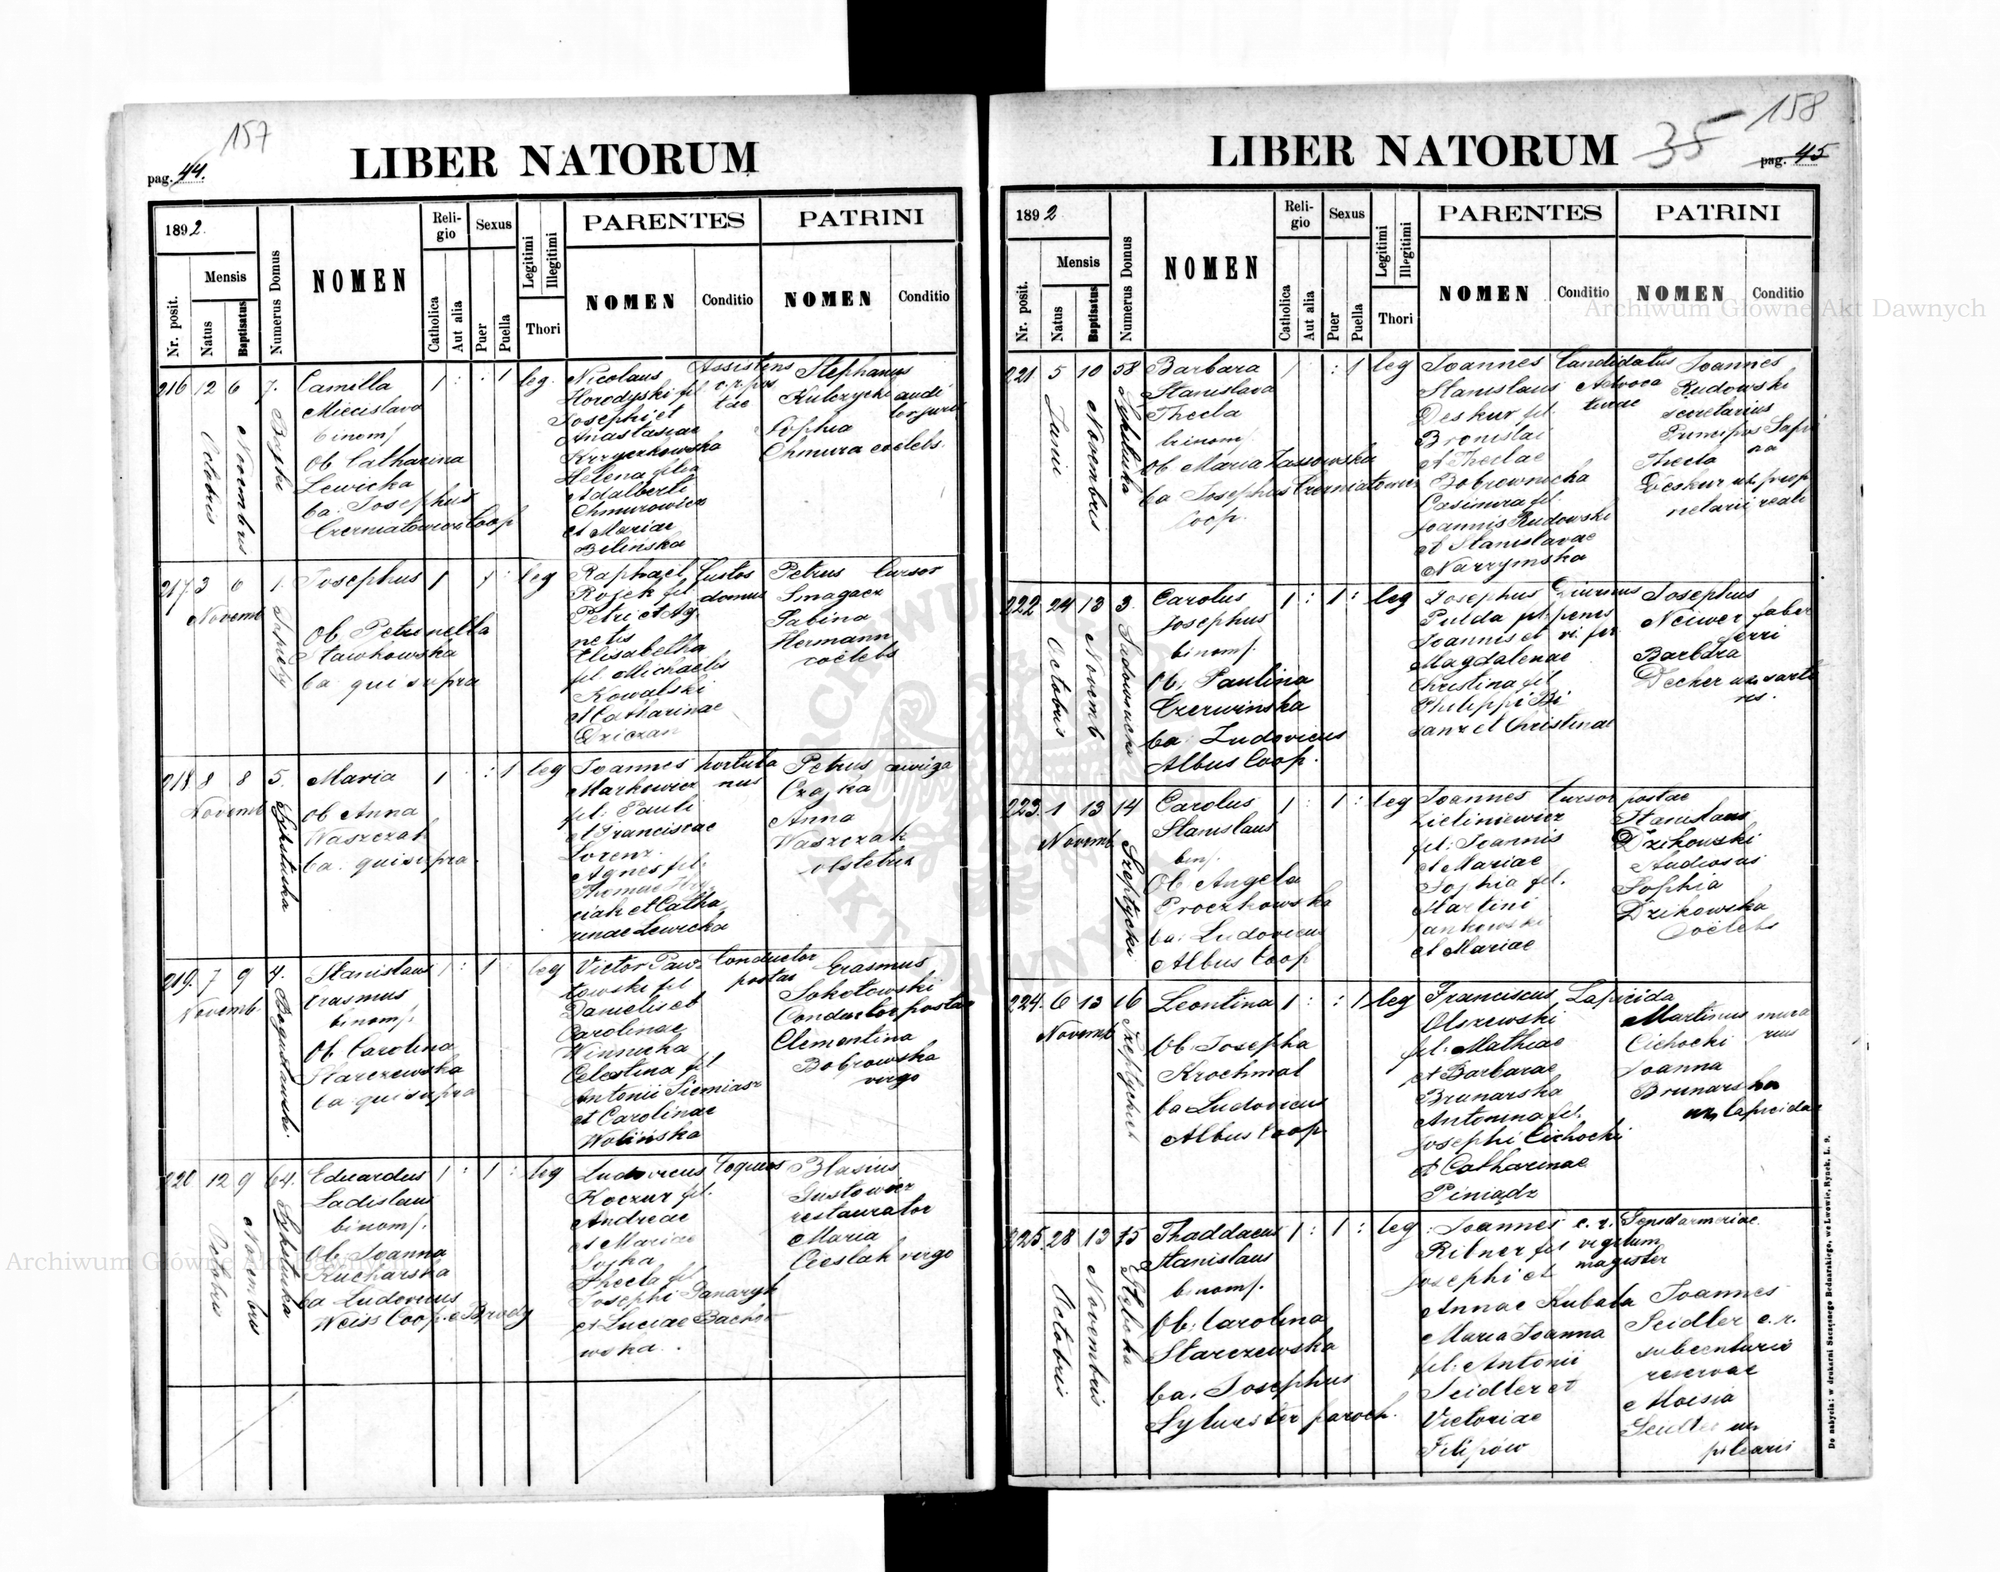 157
pag. 44.
LIBER NATORUM
1892.
Nr. posit.
Mensis
Natus
Baptisatus
Numerus Domus
NOMEN
Religio
Catholica
Aut alia
Sexus
Puer
Puella
Legitimi
Illegitimi
Thori
PARENTES
NOMEN
Conditio
PATRINI
NOMEN
Conditio
216 12 6 7.
Octobris
Novembris
Camilla
Miecislava
binom.
Ob Catharina
Lewicka
ba. Josephus
Czerniatowicz Coop
1 : : 1 leg.
Nicolaus
Horodyski fil
Josephi et
Anastasiae
Krzyczkowska
Helena filia
Adalberti
Chmurowicz
et Mariae
Bilińska
Assistens
Stephanus
Kulczycki
Sophia
Chmura coelebs
217 3 6 1.
Novemb
Josephus
Ob Petronella
Stawkowska
ba qui supra
1 1 : leg
Raphael
Rojek fil
Petri et Ag
netis
Elisabetha
fil Michaelis
Kowalski
et Catharinae
Dziczan
Custos
domus
Petrus Cursor
Smagacz
Sabina
Hermann
coelebs
218 8 8 5.
Novemb
Sykstuska
Maria
Ob Anna
Waszczak
ba. qui supra.
1 : 1 leg
Joannes
Markowicz
fil: Pauli
et Franciscae
Lorenz.
Agnes fil.
Thomae
et Catha
rinae Lewicka
hortula
nus
Petrus auriga
Czajka
Anna
Waszczak
obstetrix
219. 7 9 4.
Novemb.
Stanislaus
Erasmus
binom.
Ob Carolina
Starczewska
ba qui supra
1 : 1 leg
Victor Paw
towski fil
Danielis et
Carolinae
Winnicka
Celestina fil
Antonii Siemiasz
et Carolinae
Wolińska
Conductor
postae
Erasmus
Sokołowski
Conductor postae
Clementina
Bobrowska
virgo
220 12 9 64.
Octobris
Novembris
Sykstuska
Eduardus
Ladislaus
binom.
Ob Joanna
Kucharska
ba Ludovicus
Weiss Coop. e Brody
1 : 1 : leg
Ludovicus
Koczur fil.
Andreae
et Mariae
Socha
Thecla fil
Josephi Panaryk
et Luciae Bacho
wska.
Coquus
Blasius
Gustowicz
restaurator
Maria
Cieslak virgo
158
35
pag. 45
LIBER NATORUM
1892
Nr. posit.
Mensis
Natus
Baptisatus
Numerus Domus
NOMEN
Religio
Catholica
Aut alia
Sexus
Puer
Puella
Legitimi
Illegitimi
Thori
PARENTES
NOMEN
Conditio
PATRINI
NOMEN
Conditio
221 5 10 58
Junii
Novembris
Sykstuska
Barbara
Stanislava
Thecla
binom.
Ob Maria Zassowska
ba Josephus Czerniatowicz
Coop.
1 : 1 leg
Joannes
Stanislaus
Deskur fil.
Bronislai
et Theclae
Bobrownicka
Casimira fil.
Joannis Rudowski
et Stanislavae
Narzymska
Candidatus
Advoca
turae
Joannes
Rudowski
secretarius
Principis Sapi
Thecla
Deskur
222 24 13 3.
Octobris
Novemb
Carolus
Josephus
binom.
Ob. Paulina
Czerwinska
ba: Ludovicus
Albus Coop.
1 : 1 : leg
Josephus
Pulda fil.
Joannis et
Magdalenae
Christina fil
Philippi Bi
sanz et Christinae
Diurnus
penes
Josephus
Neiwer faber
ferri
Barbara
Decher uxor sarto
ris.
223. 1 13 14
Novemb
Szeptycki
Carolus
Stanislaus
bin.
Ob Angela
Proczkowska
ba: Ludovicus
Albus Coop
1 : 1 : leg
Joannes
Zieliniewicz
fil: Joannis
et Mariae
Sophia fil.
Martini
Jankowski
et Mariae
Cursor postae
Stanislaus
Dzikowski
studiosus
Sophia
Dzikowska
coelebs
224. 6 13 16
Novemb
Leontina
Ob. Josepha
Krochmal
ba Ludovicus
Albus Coop
1 : : 1 leg
Franciscus
Olszewski
fil: Mathiae
et Barbarae
Brunarska
Antonina fil.
Josephi Cichocki
et Catharinae
Piniądz
Lapicida
Martinus mura
rius
Cichocki
Joanna
Brunarska
ux lapicidae
225. 28 13 15
Octobris
Novembris
Thaddaeus
Stanislaus
binom.
Ob: Carolina
Starczewska
ba. Josephus
Sylvester paroch.
1 : 1 : leg
Joannes
Ribner fil
Josephi et
Annae Kubala
Maria Joanna
fil: Antonii
Seidler et
Victoriae
Filipów
vigilum
magister
Joannes
Seidler c. r.
subcenturio
reservae
Seidler
Do nabycia: w drukarni Szczęsnego Bednarskiego, we Lwowie, Rynek, L. 9.
Archiwum Główne Akt Dawnych
Archiwum Główne Akt Dawnych